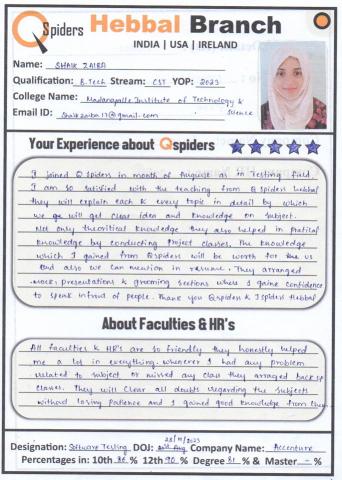 QSpiders Hebbal Branch
INDIA | USA | IRELAND
Name: SHAIK ZAIBA
Qualification: B.Tech Stream: CST YOP: 2023
College Name: Madanapalle Institute of Technology &
Science
Email ID: Shaikzaiba17@gmail.com
Your Experience about Qspiders
I joined Qspiders in month of August as in Testing field.
I am so satisfied with the teaching from Qspiders Hebbal
they will explain each & every topic in detail by which
we will get clear idea and knowledge on subject.
Not only theoritical knowledge they also helped in pratical
knowledge by conducting Project classes. The knowledge
which I gained from Qspiders will be worth for the us
and also we can mention in resume. They arranged
mock presentations & grooming sections where I gained confidence
to speak infront of people. Thank you Qspiders & Jspiders Hebbal
About Faculties & HR's
All faculties & HR's are so friendly they honestly helped
me a lot in everything. whenever I had any problem
related to subject or missed any class they arraged backup
classes. They will clear all doubts regarding the subjects
without losing Patience and I gained good knowledge from them
28/11/2023
Designation: Software Testing DOJ: Company Name: Accenture
Percentages in: 10th 86 % 12th 90 % Degree 81 % & Master - %